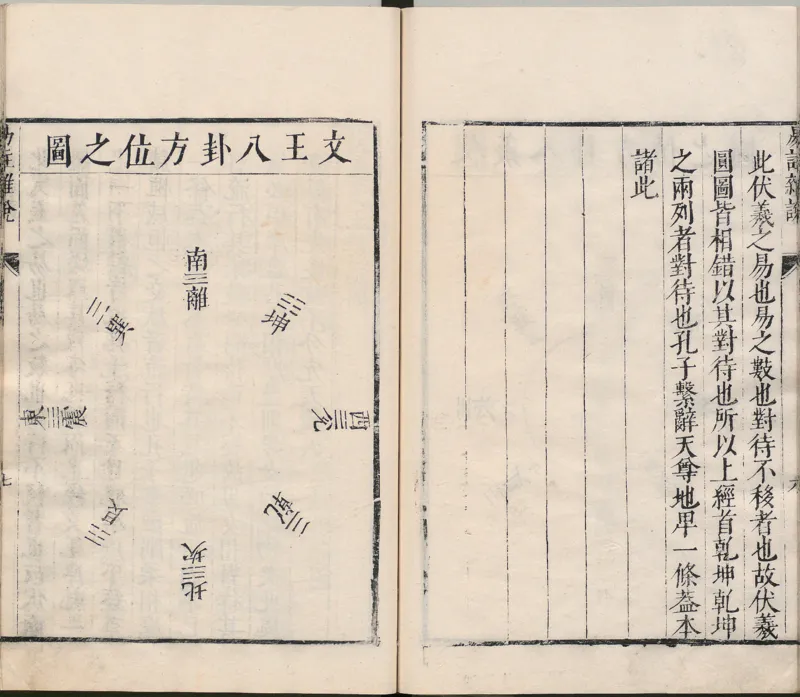 此伏羲之易也易之數也對待不移者也故伏羲
圓圖皆相錯以其對待也所以上經首乾坤乾坤
之兩列者對待也孔子繫辭天尊地卑一條蓋本
諸此
文王八卦方位之圖
南☲離
☷坤
☴巽
東☳震
西☱兌
☶艮
☰乾
北☵坎
七